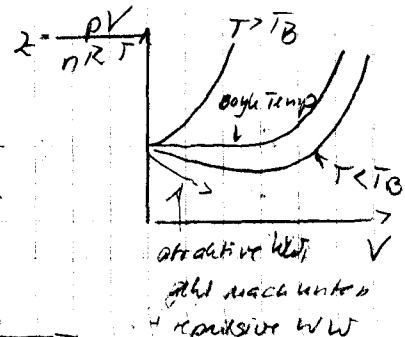 z = pV / nRT
T > TB
Boyle Temp
T < TB
V
attraktive WW,
geht nach unten
+ repulsive WW